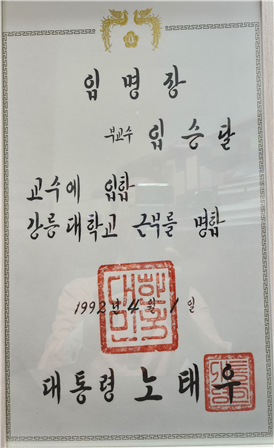 임명장
부교수 임승달
교수에 임함
강릉대학교 근무를 명함
1992년 4월 1일
대통령 노태우